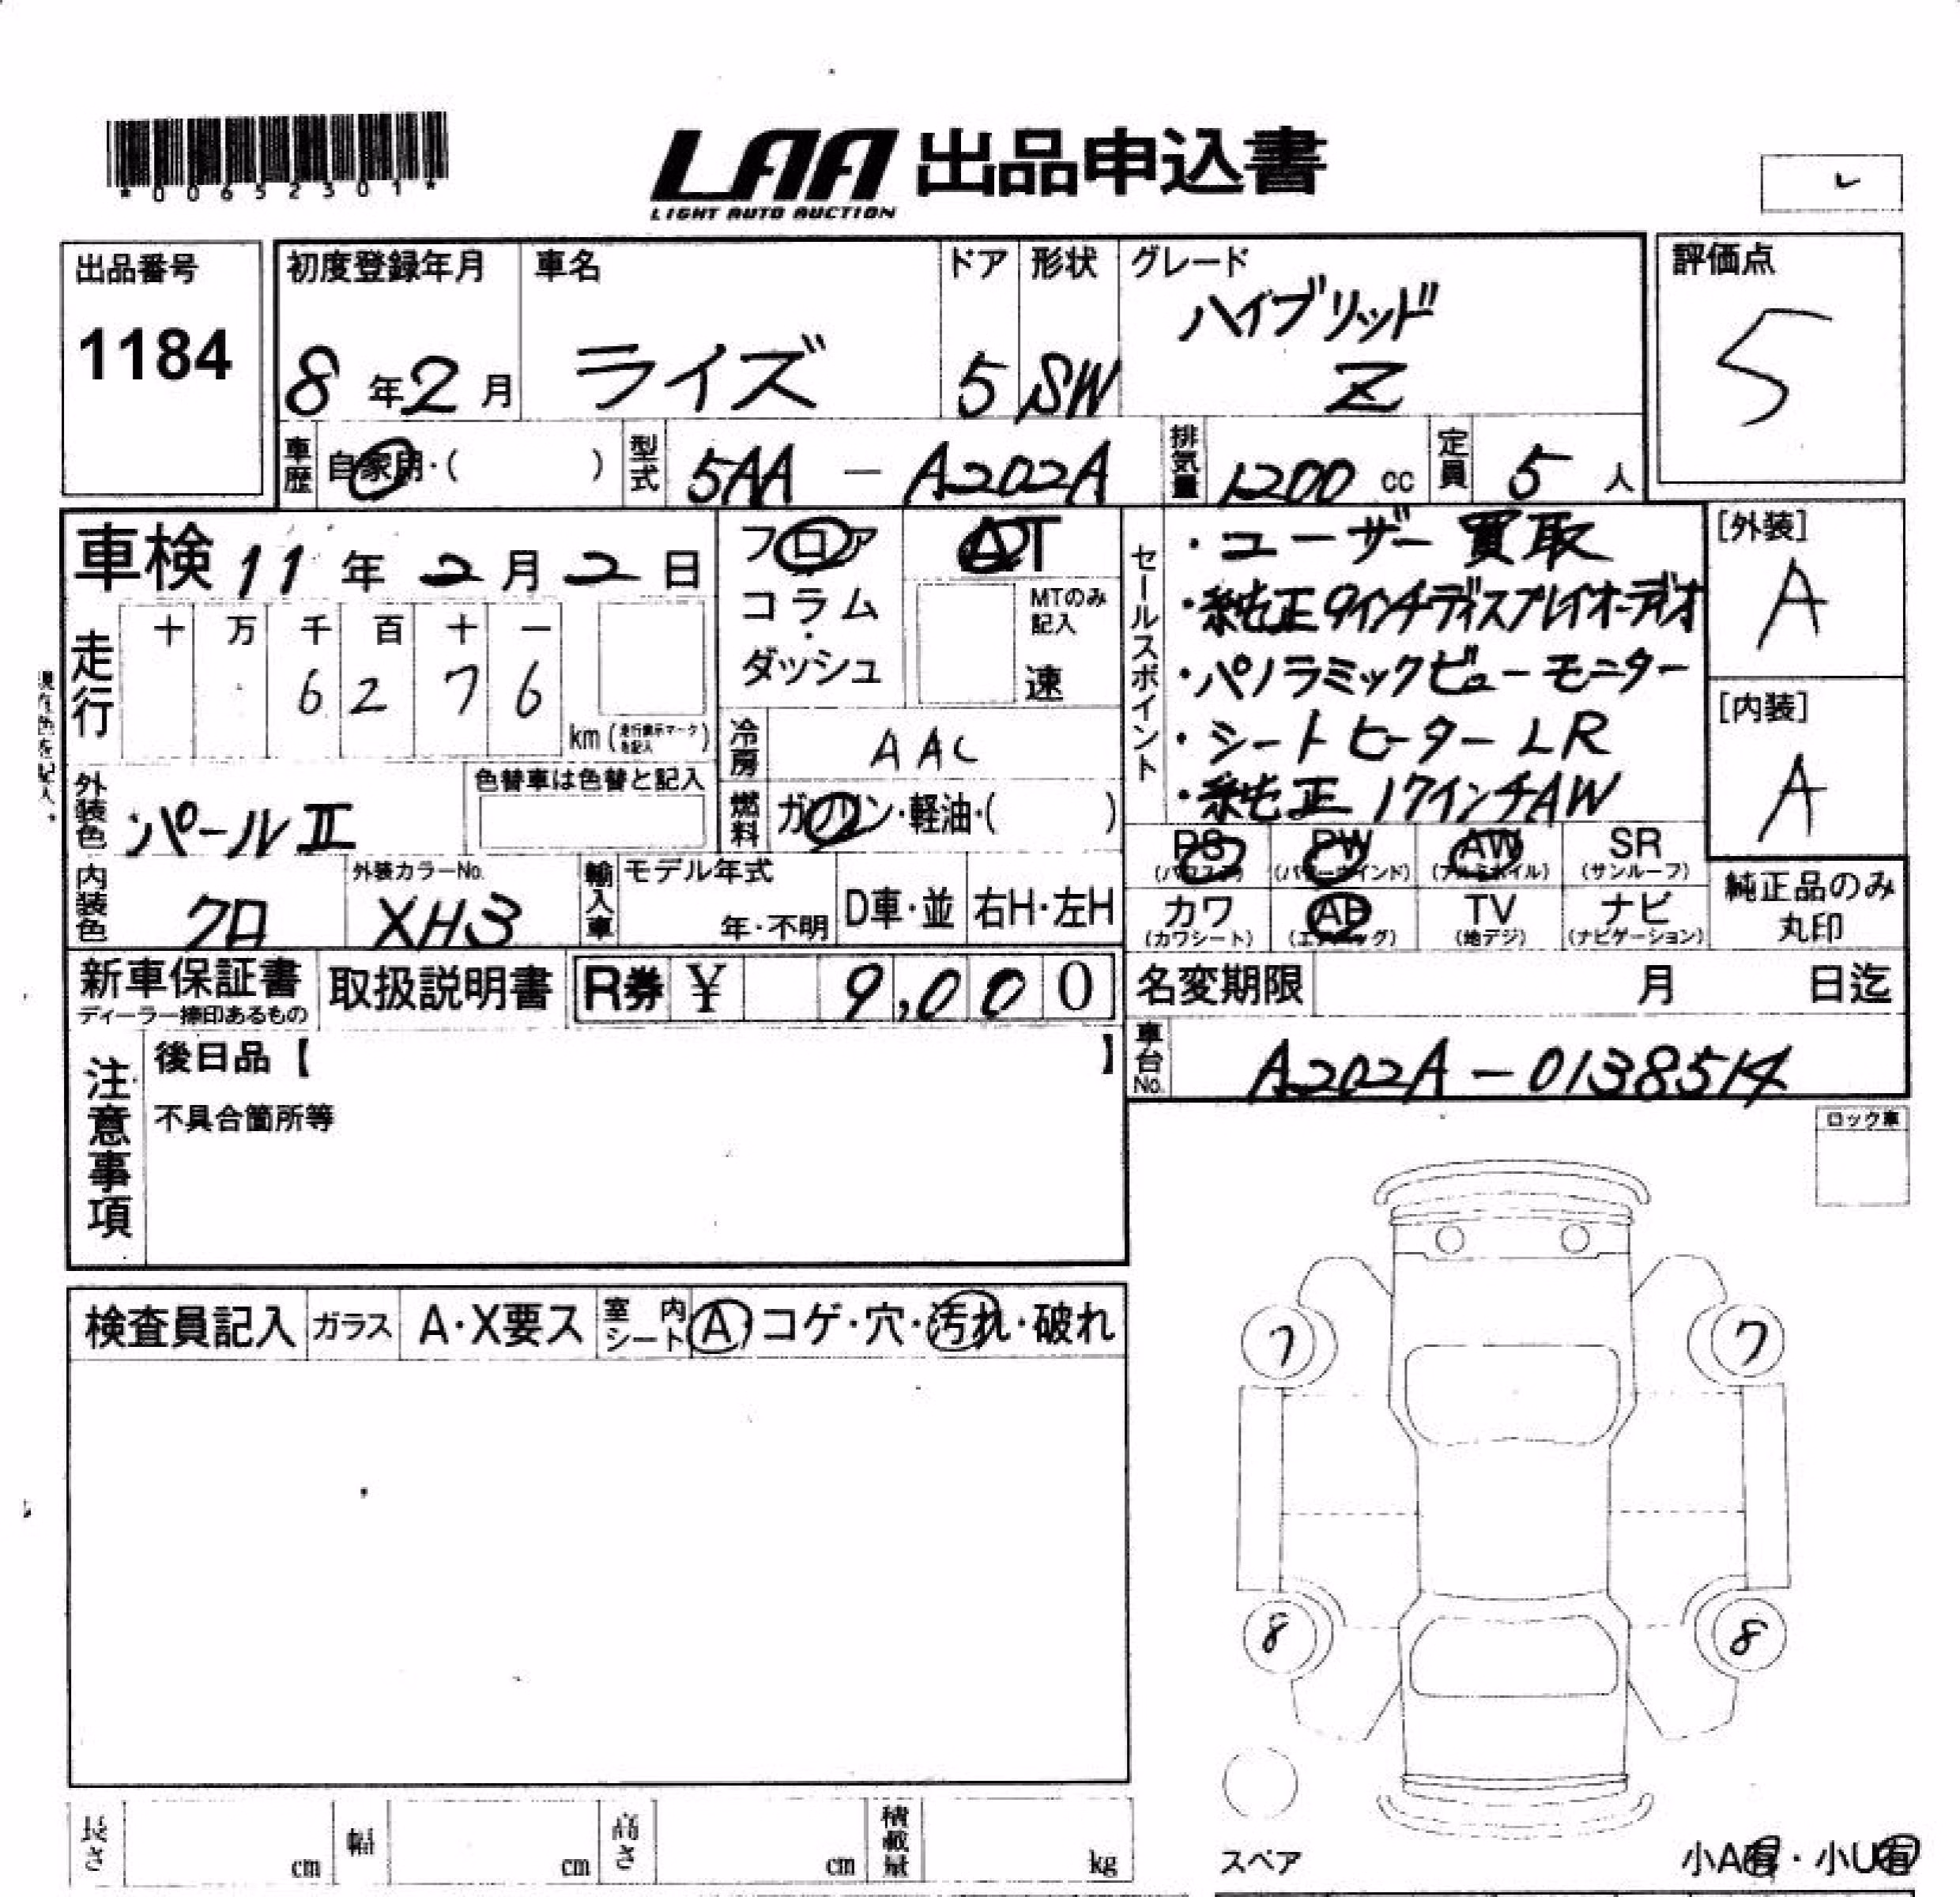 *00652301*
LAA 出品申込書
LIGHT AUTO AUCTION
レ
出品番号
1184
初度登録年月
8年2月
車名
ライズ
ドア
5
形状
SW
グレード
ハイブリッド
Z
評価点
5
車歴
自家用・( )
型式
5AA - A202A
排気量
1200 cc
定員
5 人
車検 11年2月2日
走行
十 万 千 百 十 一
6 2 7 6
km (走行表示マークを記入)
フロア
コラム
・
ダッシュ
AT
MTのみ
記入
速
冷房
AAC
燃料
ガソリン・軽油・( )
セールスポイント
・ユーザー買取
・純正9インチディスプレイオーディオ
・パノラミックビューモニター
・シートヒーターLR
・純正17インチAW
[外装]
A
[内装]
A
外装色
パールII
色替車は色替と記入
内装色
クロ
外装カラーNo.
XH3
輸入車
モデル年式
年・不明
D車・並
右H・左H
PS
(パワステ)
PW
(パワーウインド)
AW
(アルミホイル)
SR
(サンルーフ)
カワ
(カワシート)
AB
(エアバッグ)
TV
(地デジ)
ナビ
(ナビゲーション)
純正品のみ
丸印
新車保証書
ディーラー捺印あるもの
取扱説明書
R券 ¥ 9,000
名変期限 月 日迄
車台No.
A202A-0138514
注意事項
後日品【 】
不具合箇所等
ロック車
検査員記入
ガラス
A・X要ス
室内シート
A・コゲ・穴・汚れ・破れ
7
7
8
8
長さ cm
幅 cm
高さ cm
積載量 kg
スペア
小A有・小U有